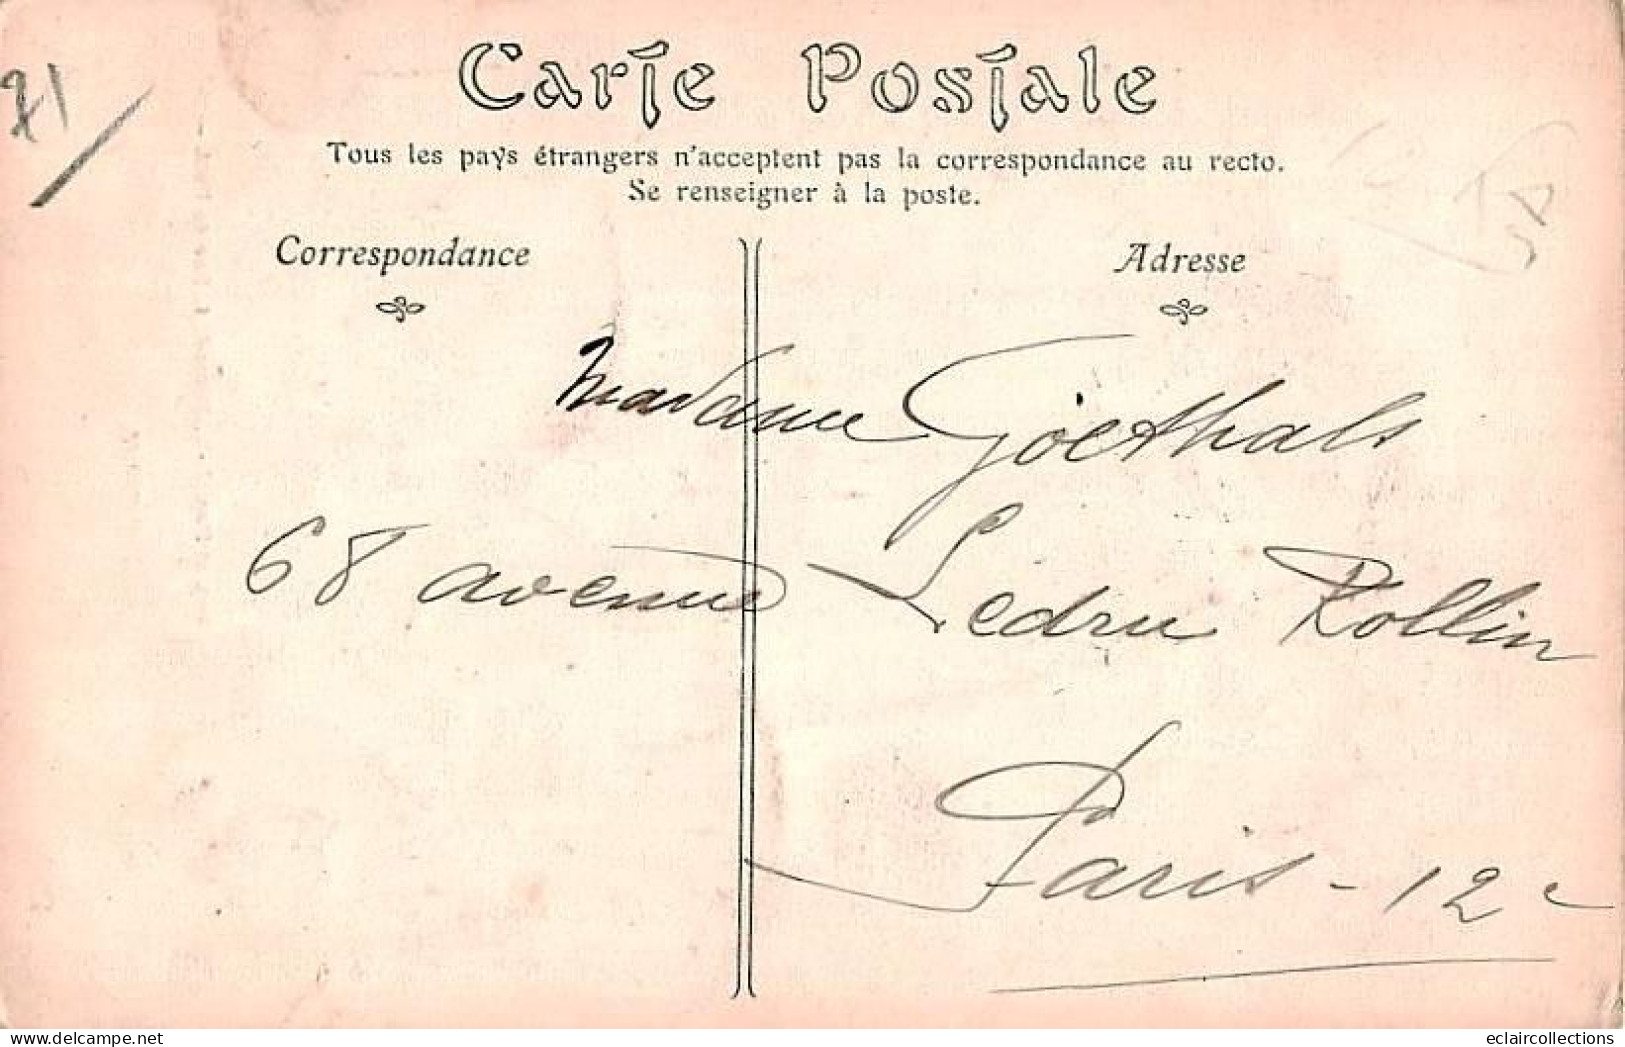 71
Carte Postale
Tous les pays étrangers n'acceptent pas la correspondance au recto.
Se renseigner à la poste.
Correspondance
Adresse
Madame Goethals
68 avenue Ledru Rollin
Paris - 12e
www.delcampe.net
eclaircollections